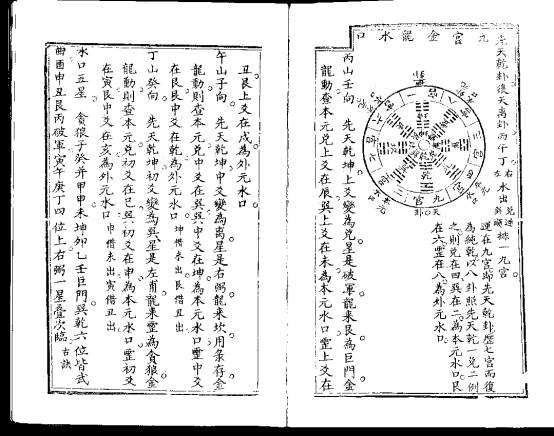 九宮金龍水口
先天乾卦後天离卦丙午丁
右
左
水出
兌逆
巽順
排 九宮
運在九宮卽先天乾卦歷七宮而復
為純乾以八卦照先天乾一兌二例
之則兌在四巽在二為本元水口艮
在六震在八為外元水口
丙山壬向 先天乾坤上爻變為兌星是破軍龍來艮為巨門金
龍動查本元兌上爻在辰巽上爻在未為本元水口震上爻在
丑艮上爻在戌為外元水口
午山子向 先天乾坤中爻變為离星是右弼龍來坎用条存金
龍動則查本元兌中爻在巽巽中爻在坤為本元水口震中爻
在艮艮中爻在乾為外元水口 坤借未出 艮借丑出
丁山癸向 先天乾坤初爻變為巽星是左甫龍來震為貪狼金
龍動則查本元兌初爻在巳巽初爻在申為本元水口震初爻
在寅艮中爻在亥為外元水口 申借未出 寅借丑出
水口五星 貪狼子癸并甲申未坤卯乙壬巨門巽乾六位皆武
曲酉申丑艮丙破軍寅午庚丁四位上右弼一星疊次臨 古訣